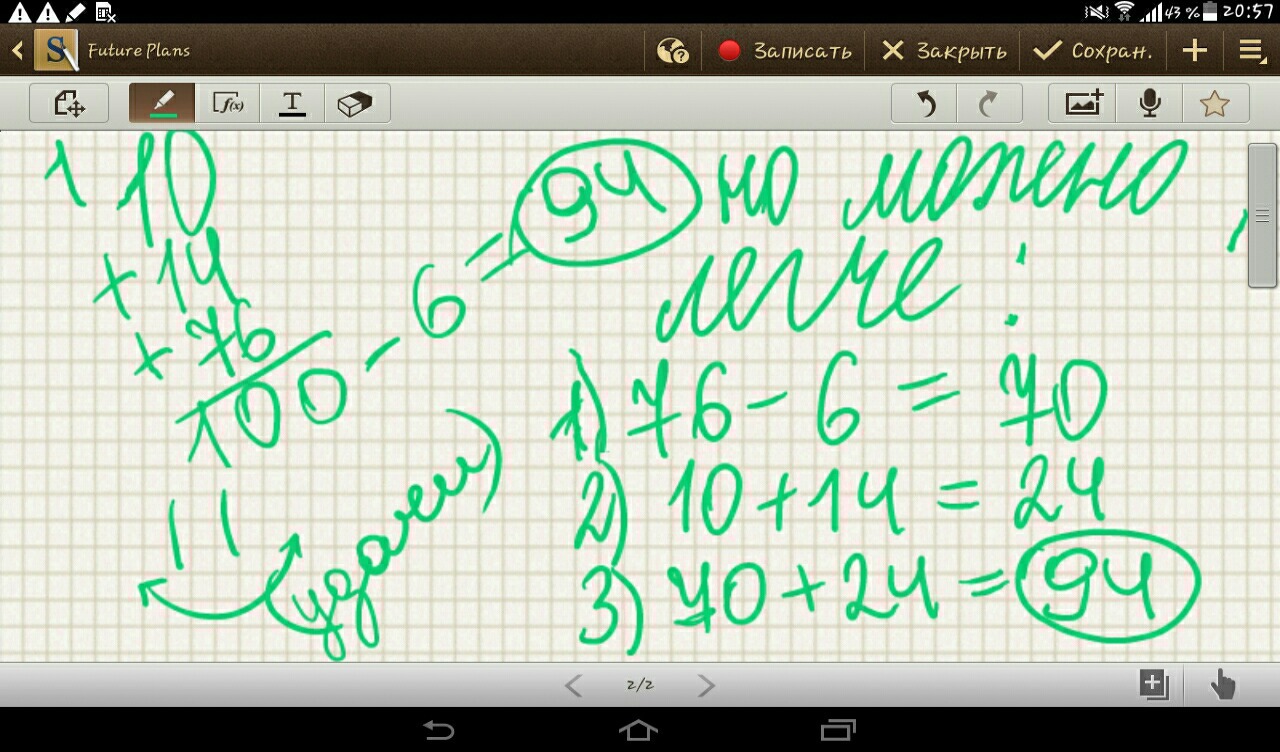 43 % 20:57
Future Plans Записать Закрыть Сохран.
f(x) T
1 10
+ 14
+ 76
100 - 6 = 94 но можно
легче :
1) 76 - 6 = 70
2) 10 + 14 = 24
3) 70 + 24 = 94
2/2